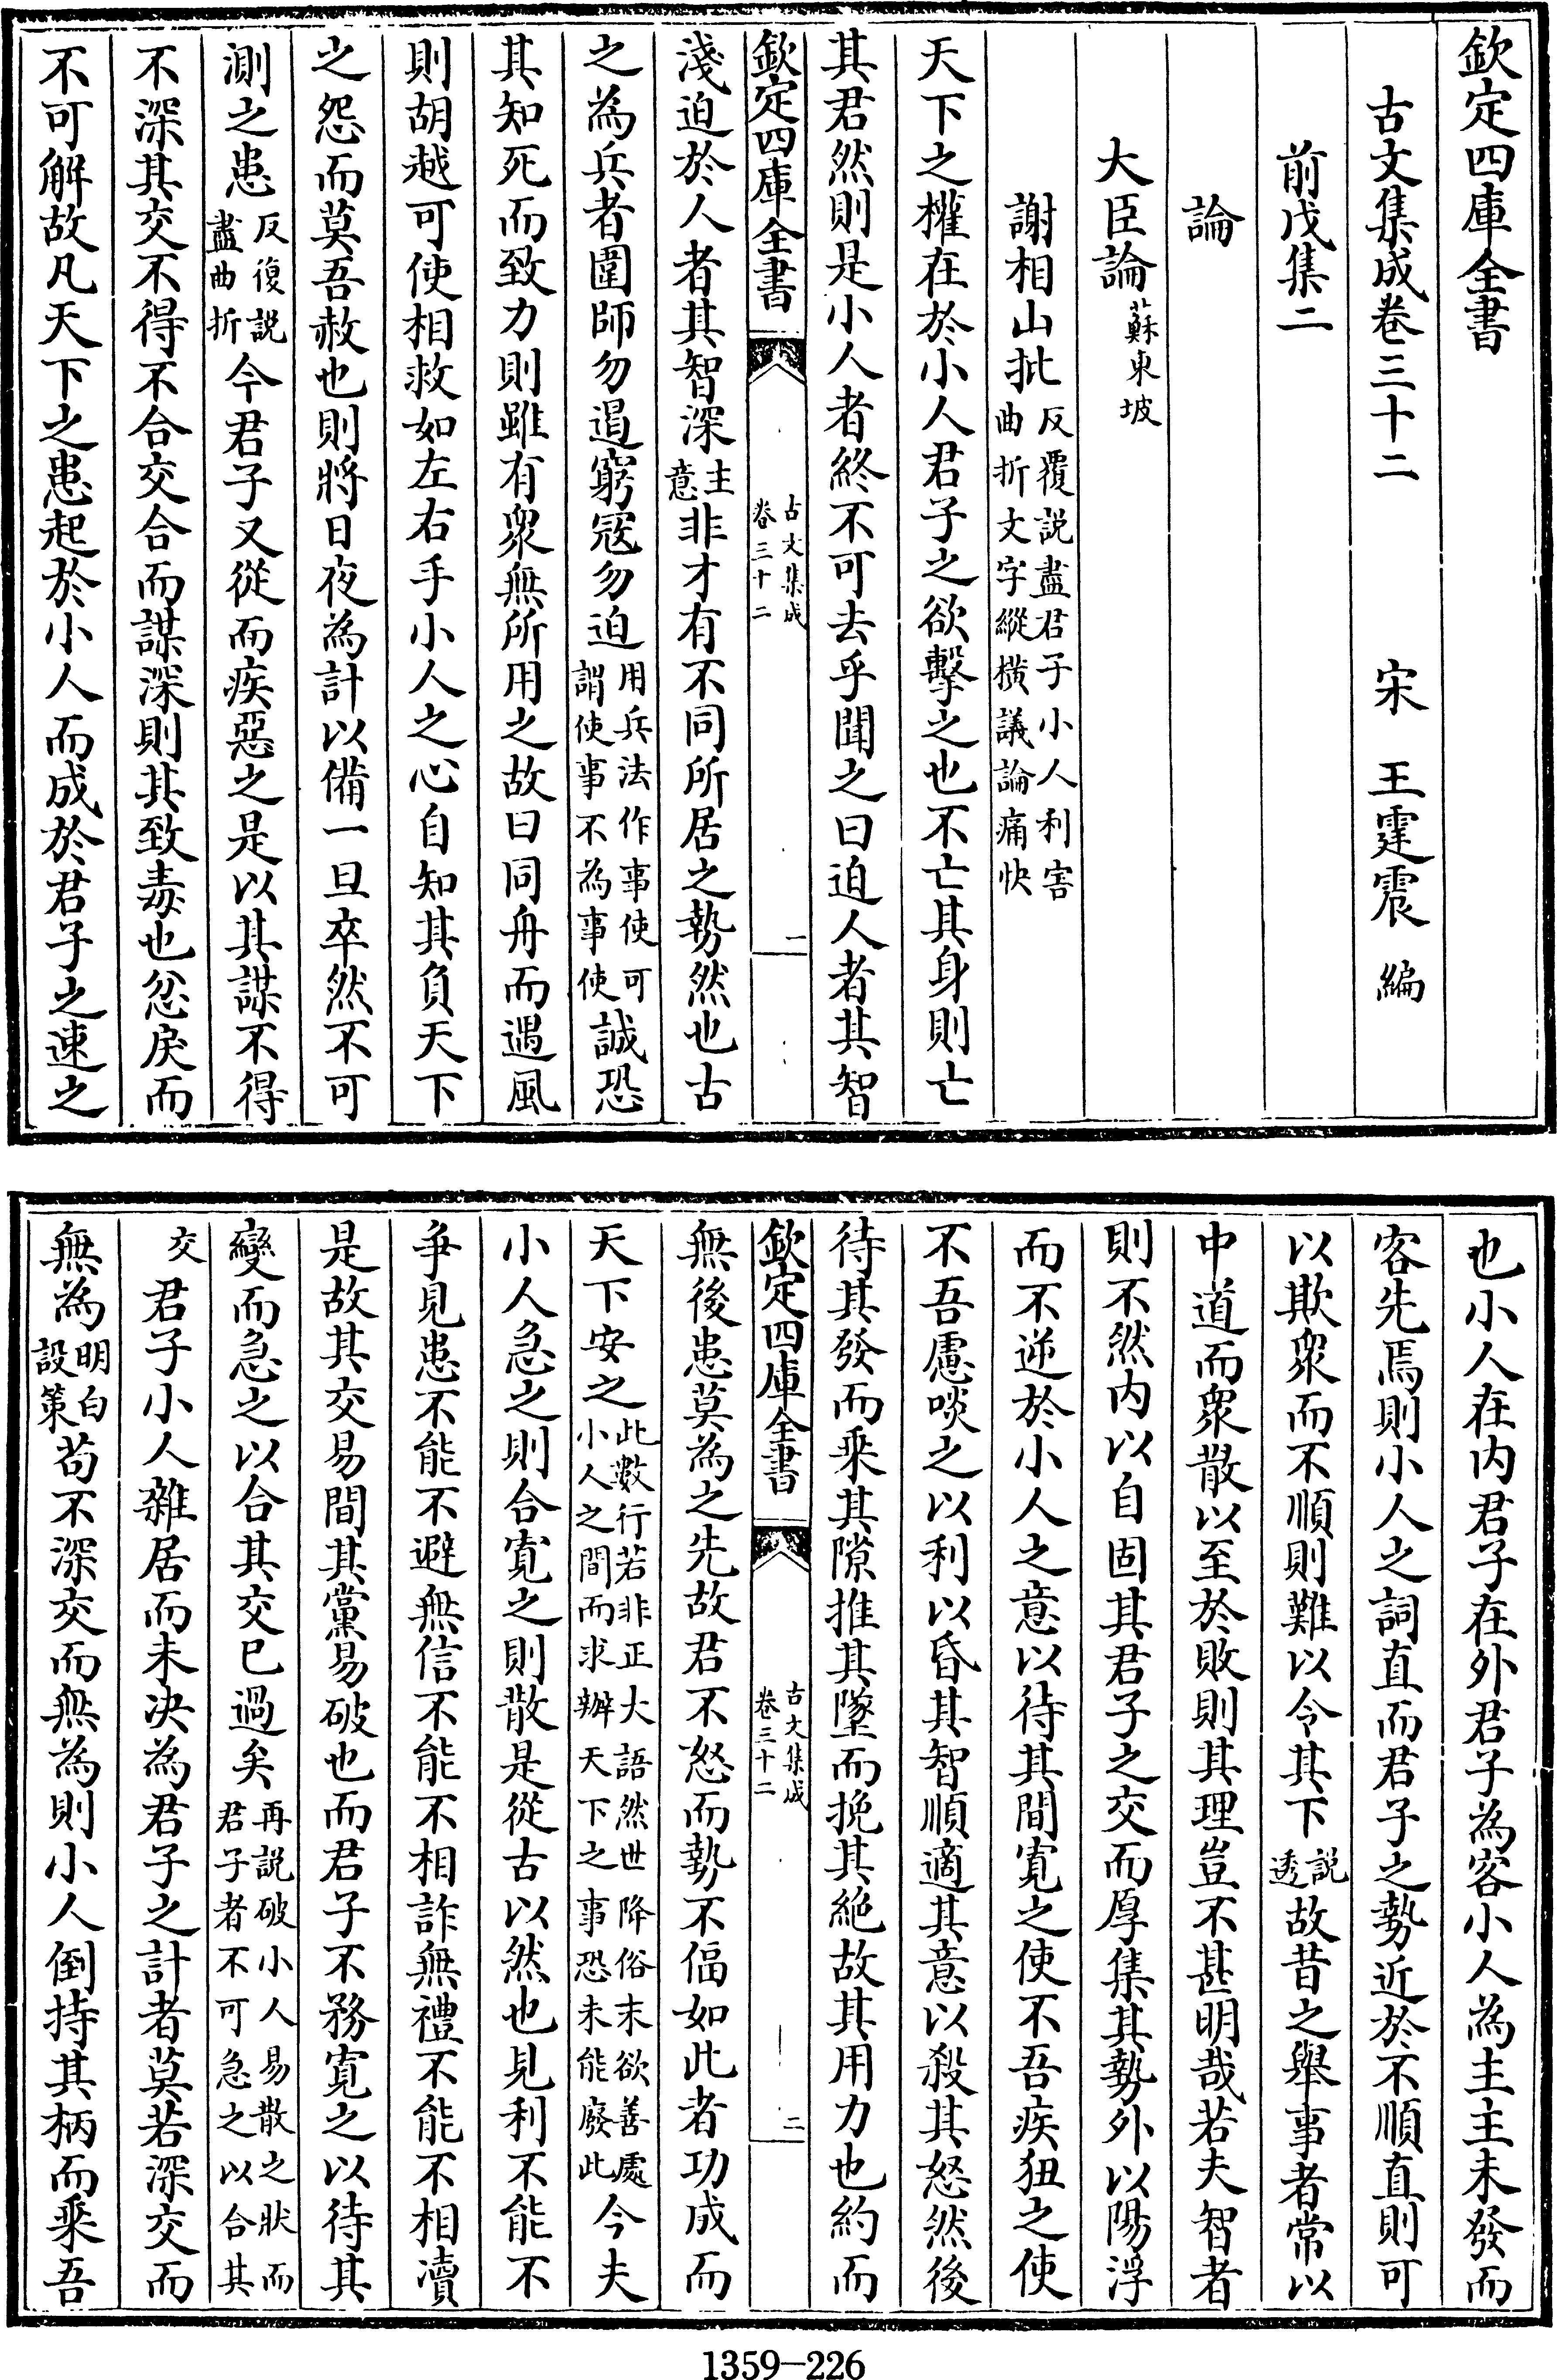 欽定四庫全書
古文集成卷三十二　宋　王霆震　編
前戊集二
論
大臣論蘇東坡
謝相山批反覆説盡君子小人利害曲折文字縱橫議論痛快
天下之權在於小人君子之欲擊之也不亡其身則亡
其君然則是小人者終不可去乎聞之曰迫人者其智
欽定四庫全書
古文集成
卷三十二
一
淺迫於人者其智深主意非才有不同所居之勢然也古
之為兵者圍師勿遏窮寇勿迫用兵法作事使可謂使事不為事使誠恐
其知死而致力則雖有衆無所用之故曰同舟而遇風
則胡越可使相救如左右手小人之心自知其負天下
之怨而莫吾赦也則將日夜為計以備一旦卒然不可
測之患反復説盡曲折今君子又從而疾惡之是以其謀不得
不深其交不得不合交合而謀深則其致毒也忿戾而
不可解故凡天下之患起於小人而成於君子之速之
也小人在内君子在外君子為客小人為主主未發而
客先焉則小人之詞直而君子之勢近於不順直則可
以欺衆而不順則難以令其下説透故昔之舉事者常以
中道而衆散以至於敗則其理豈不甚明哉若夫智者
則不然内以自固其君子之交而厚集其勢外以陽浮
而不逆於小人之意以待其間寛之使不吾疾狃之使
不吾慮啖之以利以昏其智順適其意以殺其怒然後
待其發而乘其隙推其墜而挽其絶故其用力也約而
欽定四庫全書
古文集成
卷三十二
二
無後患莫為之先故君不怒而勢不偪如此者功成而
天下安之此數行若非正大語然世降俗末欲善處小人之間而求辦天下之事恐未能廢此今夫
小人急之則合寛之則散是從古以然也見利不能不
爭見患不能不避無信不能不相詐無禮不能不相瀆
是故其交易間其黨易破也而君子不務寛之以待其
變而急之以合其交已過矣再説破小人易散之狀而君子者不可急之以合其
交君子小人雜居而未決為君子之計者莫若深交而
無為明白設策苟不深交而無為則小人倒持其柄而乘吾
1359-226